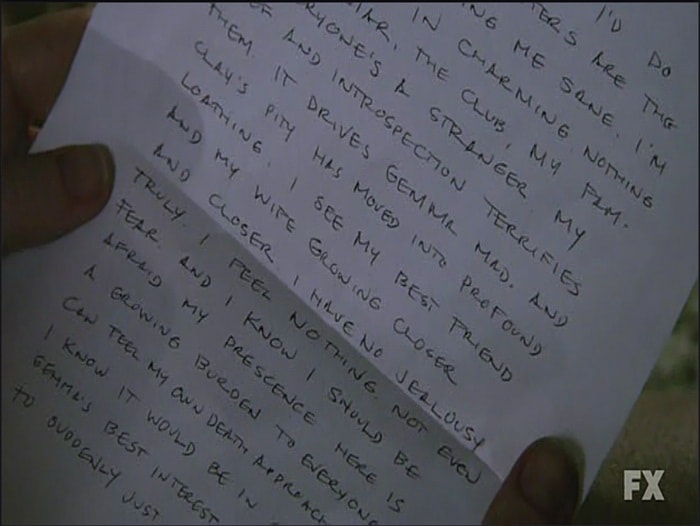 I'D DO
TERS ARE THE
ING ME SANE. I'M
IN CHARMING NOTHING
LIAR, THE CLUB, MY FAM-
RYONE'S A STRANGER MY
OF AND INTROSPECTION TERRIFIES
THEM. IT DRIVES GEMMA MAD. AND
CLAY'S PITY HAS MOVED INTO PROFOUND
LOATHING. I SEE MY BEST FRIEND
AND MY WIFE GROWING CLOSER
AND CLOSER I HAVE NO JEALOUSY
TRULY. I FEEL NOTHING. NOT EVEN
FEAR. AND I KNOW I SHOULD BE
AFRAID MY PRESCENCE HERE IS
A GROWING BURDEN TO EVERYONE
CAN FEEL MY OWN DEATH APPROACH
I KNOW IT WOULD BE IN
GEMMA'S BEST INTEREST
TO SUDDENLY JUST
FX